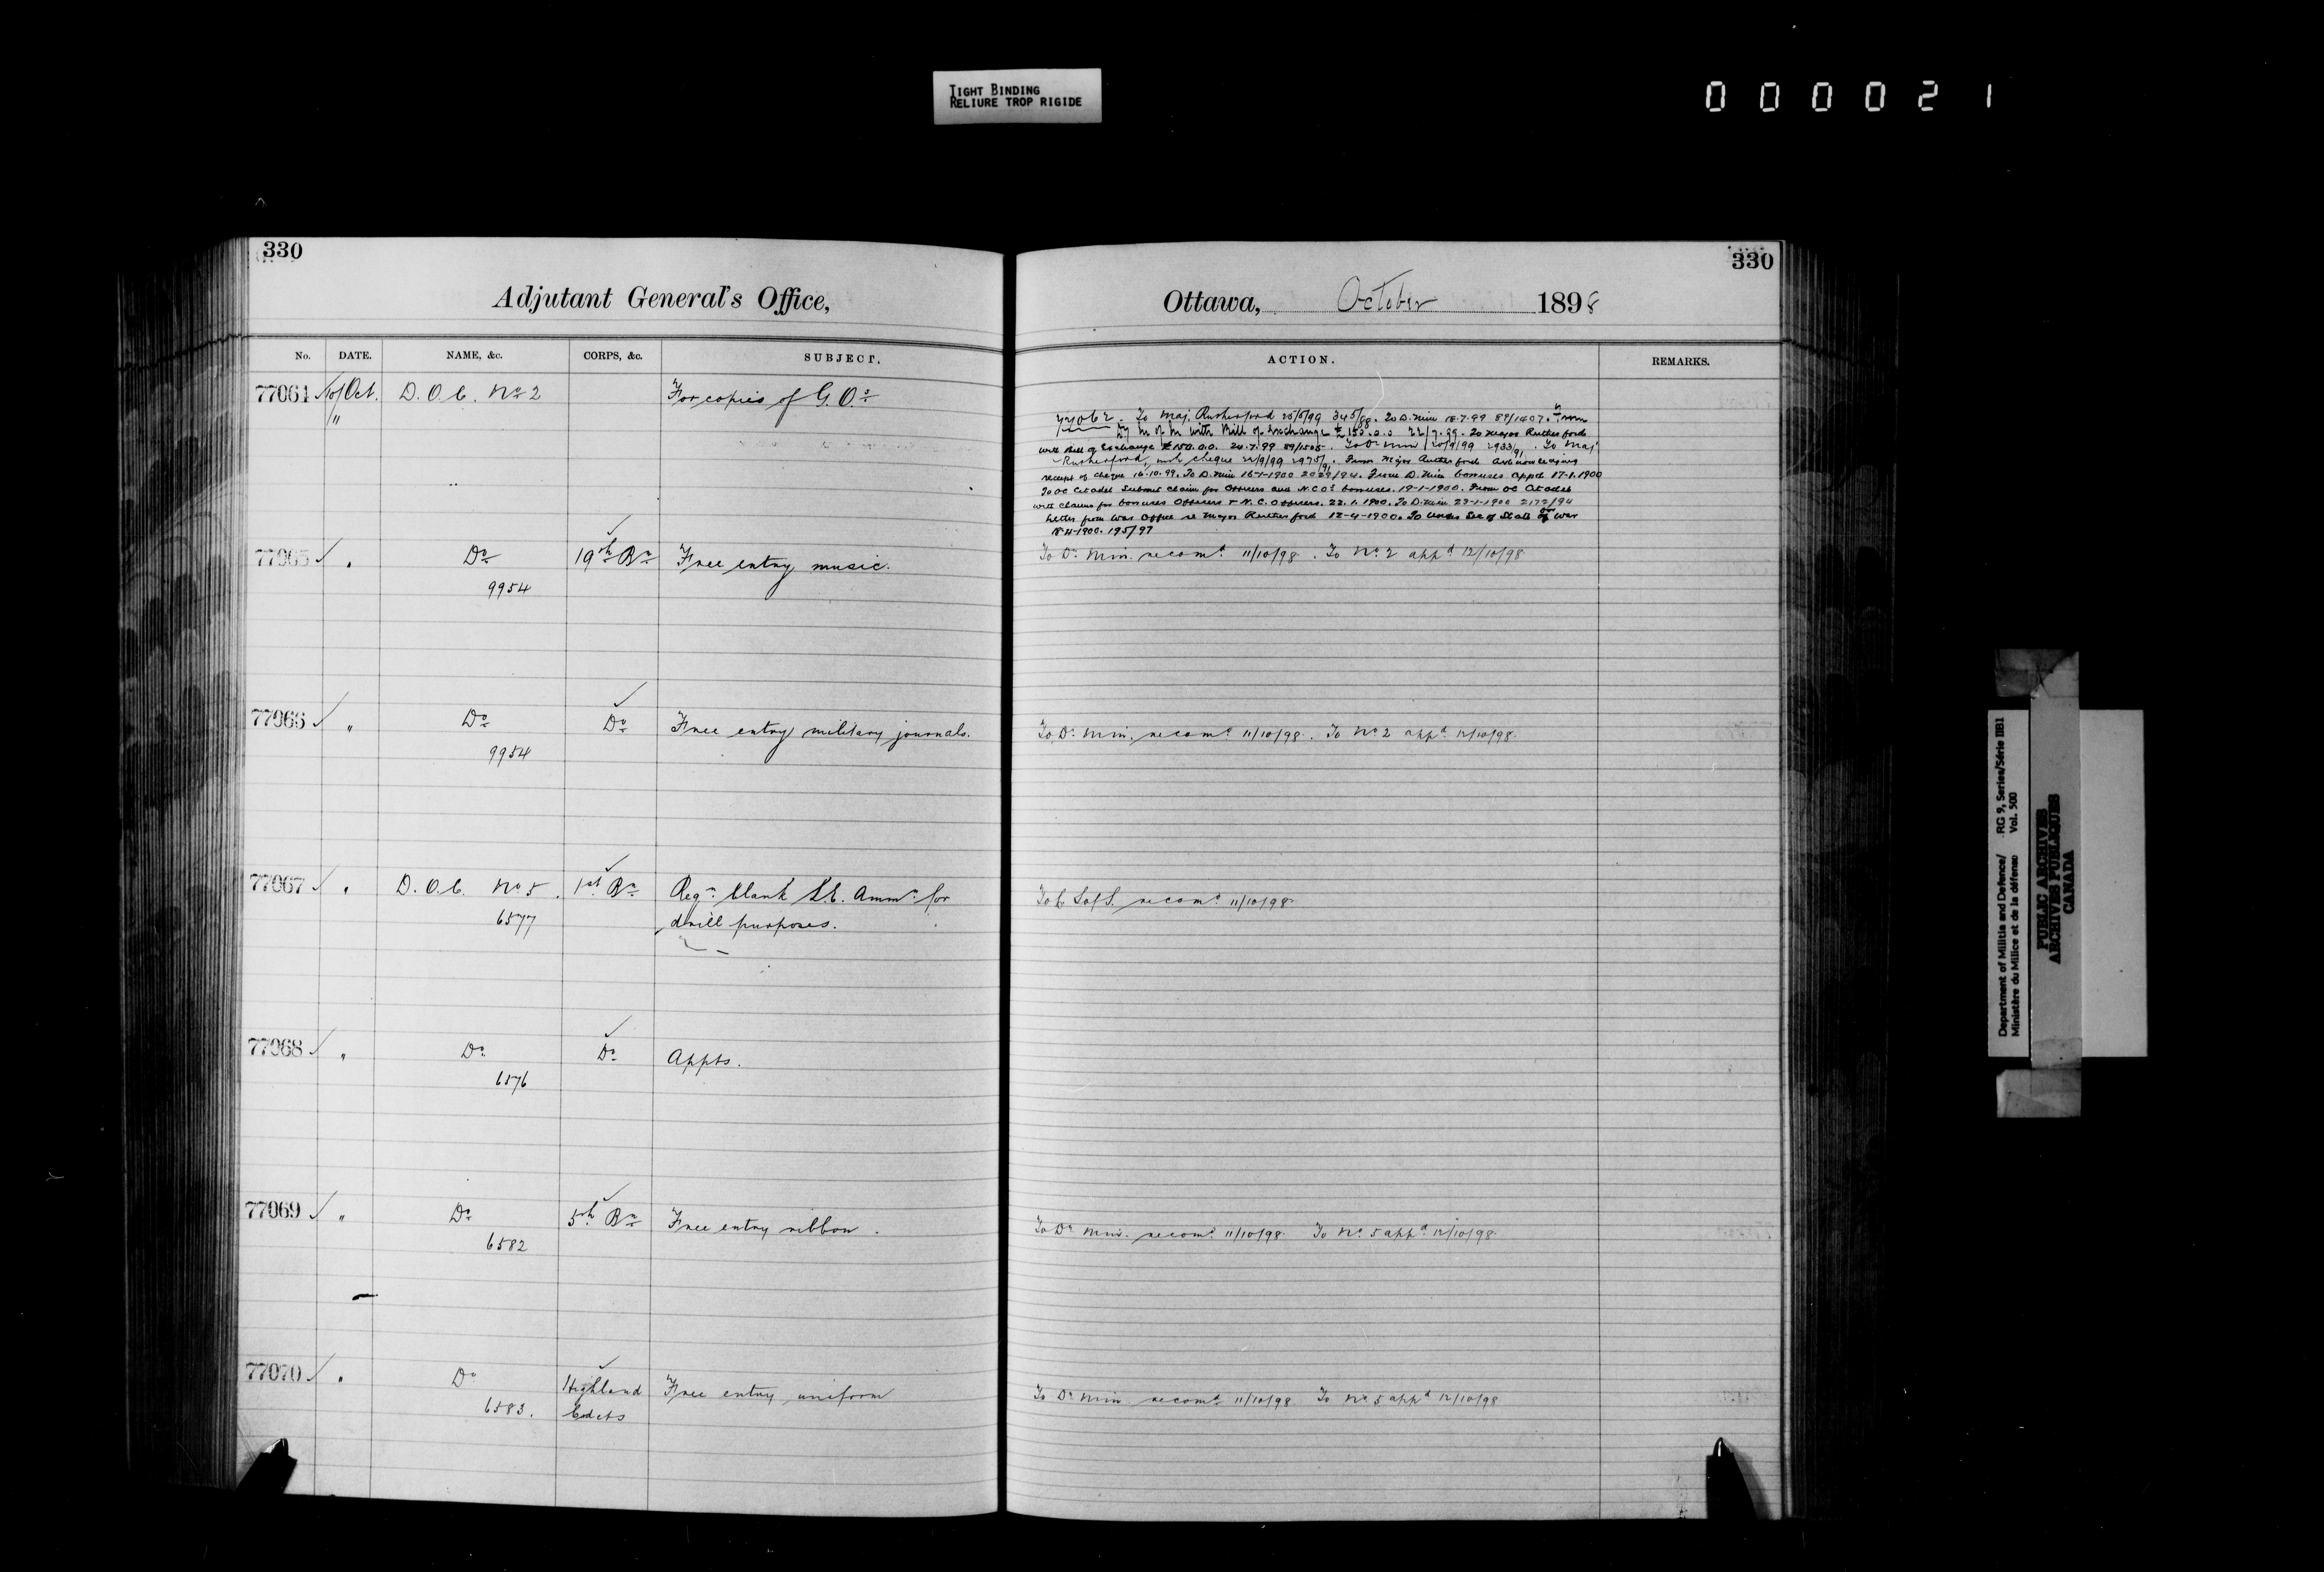 TIGHT BINDING
RELIURE TROP RIGIDE
000021
330
Adjutant General's Office,
No. DATE. NAME, &c. CORPS, &c. SUBJECT.
77064 10/Oct. D.O.C. No 2 For copies of G.O.s
"
77065 " Do 19th Bn Free entry music.
9954
77066 " Do Do Free entry military journals.
9954
77067 " D.O.C. No 5. 1st Bn Reqn blank S.A. Ammn for
6577 drill purposes.
77068 " Do Do Appts.
6576
77069 " Do 5th Bn Free entry ribbon.
6582
77070 " Do Highland Free entry uniform
6583. Cadets
330
Ottawa, October 1898
ACTION. REMARKS.
77062. To Maj. Rutherford 25/5/99 345/88. To D. Min 18.7.99 89/1407.
by M of M with Bill of Exchange £150.0.0 22/7.99. To Major Rutherford
with Bill of Exchange £150.0.0. 24.7.99 89/1505. To Dr Min 20/9/99 2933/91. To Maj
Rutherford, with cheque 22/9/99 2975/91. From Major Rutherford acknowledging
receipt of cheque 16.10.99. To D. Min 16-1-1900 2029/94. From D. Min bonuses appd 17-1.1900
To OC Citadel Submit claim for Officers and N.C.O's bonuses. 19-1-1900. From OC Citadel
with claims for bonuses Officers & N.C. Officers. 22.1.1900. To D. Min 23-1-1900 2172/94
Letter from War Office re Major Rutherford 12-4-1900. To Under Sec of State for War
18-4-1900. 195/97
To Dr Min. recomd 11/10/98. To No 2 appd 12/10/98
To Dr Min. recomd 11/10/98. To No 2 appd 12/10/98.
To C. S of S. recomd 11/10/98.
To Dr Min. recomd 11/10/98. To No 5 appd 12/10/98.
To Dr Min recomd 11/10/98 To No 5 appd 12/10/98
Department of Militia and Defence/ RG 9, Series/Série IIB1
Ministère du Milice et de la défense Vol. 500
PUBLIC ARCHIVES
ARCHIVES PUBLIQUES
CANADA